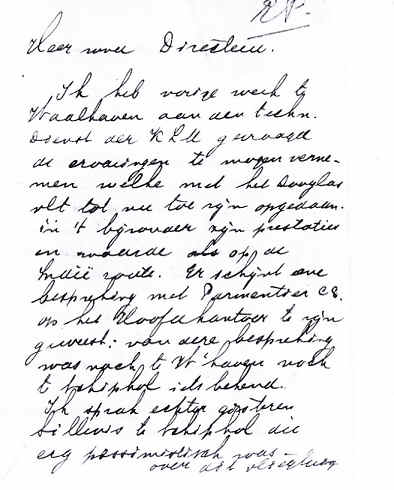 Heer Directeur.
Ik heb vorige week te
Waalhaven aan den techn.
Dienst der KLM gevraagd
de ervaringen te mogen verne-
men welke met het Douglas
vlt tot nu toe zijn opgedaan.
in 't bijzonder zijn prestaties
en waarde als op de
Indië route. Er schijnt eene
bespreking met Parmentier c.s.
op het Hoofdkantoor te zijn
geweest: van deze bespreking
was noch te W'haven noch
te Schiphol iets bekend.
Ik sprak echter gisteren
Sillevis te Schiphol die
erg pessimistisch was
over dit vliegtuig